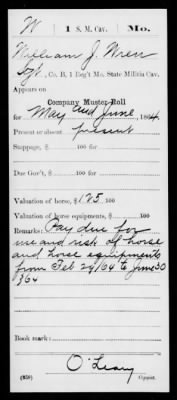 W 1 S. M. Cav. Mo.
William J. Wren
Sgt, Co. B, 1 Reg't Mo. State Militia Cav.
Appears on
Company Muster Roll
for May and June, 1864.
Present or absent present
Stoppage, $ 100 for
Due Gov't, $ 100 for
Valuation of horse, $ 125 100
Valuation of horse equipments, $ 100
Remarks: Pay due for
use and risk of horse
and horse equipments
from Feb 29/64 to June 30
/64
Book mark:
O'Leary
(859) Copyist.